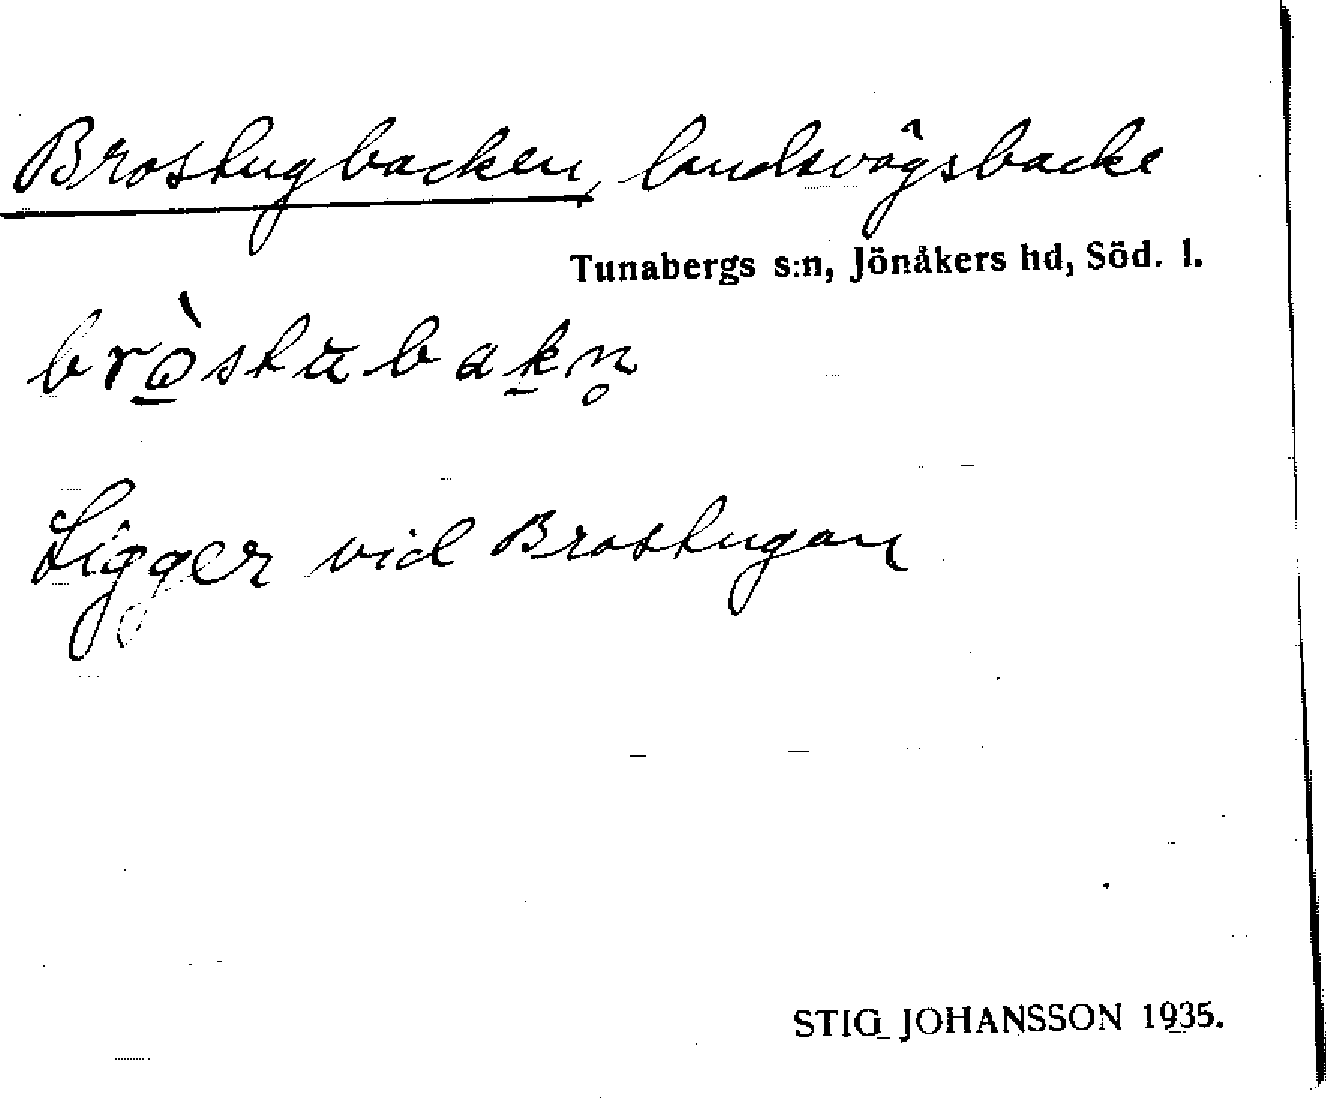 Brostugbacken, landsvägsbacke
Tunabergs s:n, Jönåkers hd, Söd. l.
brò̱stubaḵn̥
Ligger vid Brostugan
STIG JOHANSSON 1935.